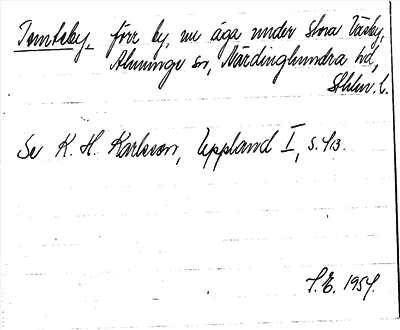 Tomteby, förr by, nu äga under Stora Väsby,
Almunge sn, Närdinghundra hd,
Sthlm. l.
Se K. H. Karlsson, Uppland I, s. 413.
S.E. 1954.